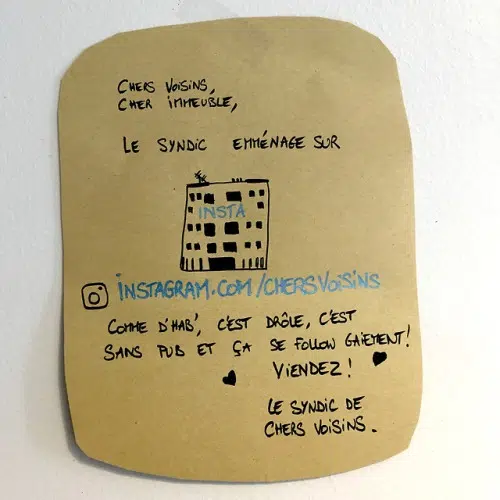 CHERS VOISINS,
CHER IMMEUBLE,
LE SYNDIC EMMÉNAGE SUR
INSTA
INSTAGRAM.COM/CHERSVOISINS
COMME D'HAB', C'EST DRÔLE, C'EST
SANS PUB ET ÇA SE FOLLOW GAIEMENT!
VIENDEZ!
LE SYNDIC DE
CHERS VOISINS.